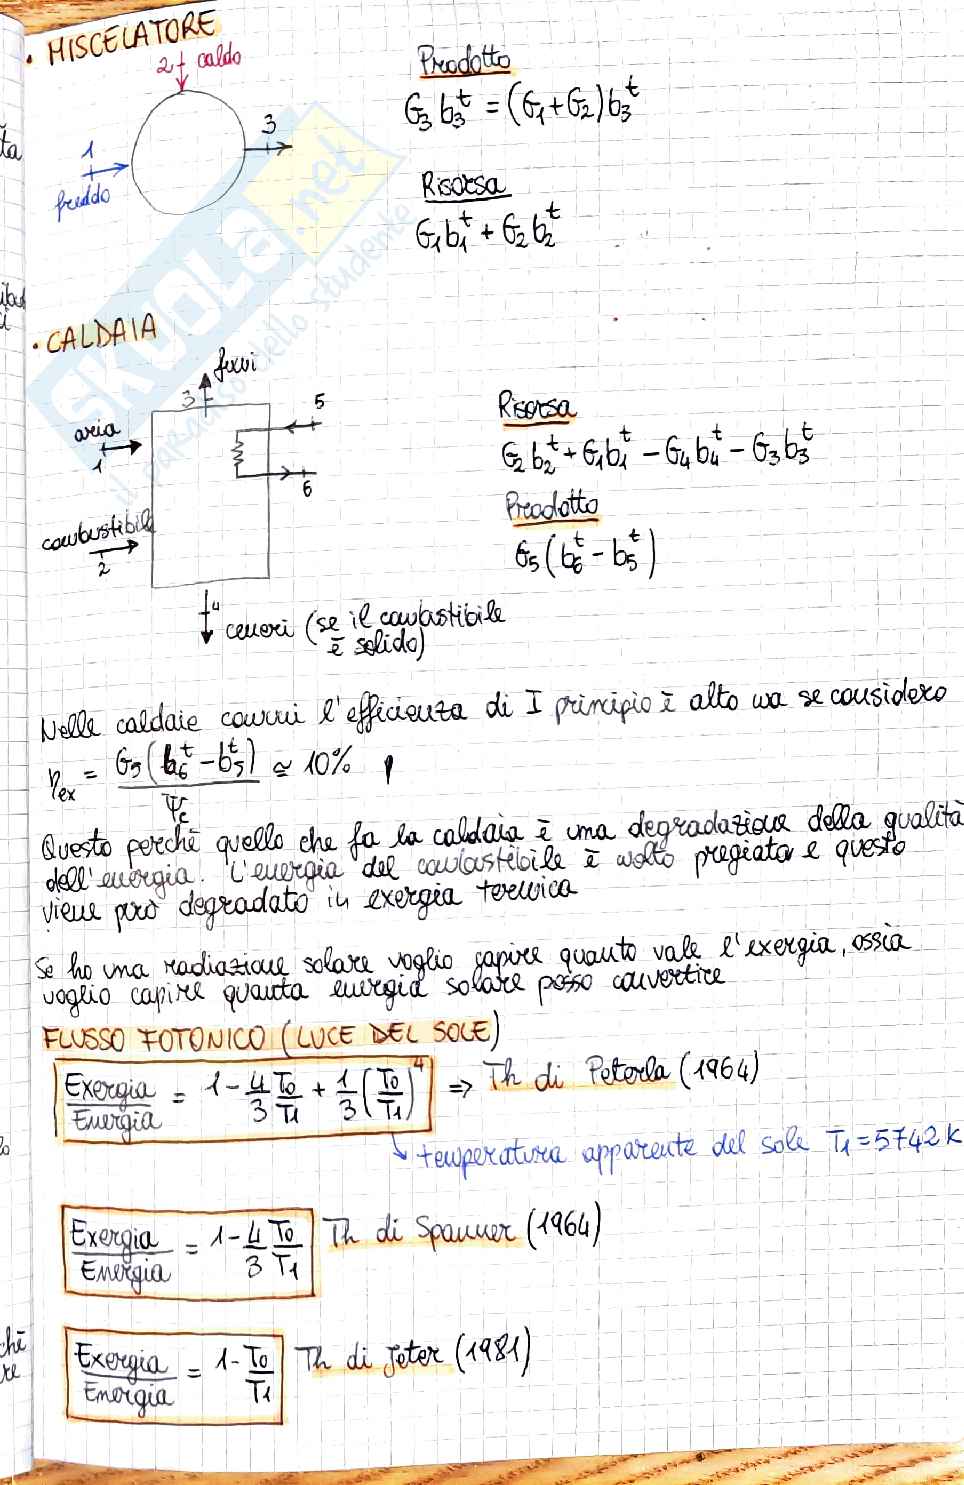 • MISCELATORE
2 caldo
1
freddo
3
Prodotto
G₃ b₃ᵗ = (G₁+G₂)b₃ᵗ
Risorsa
G₁b₁ᵗ + G₂b₂ᵗ
SKUOLA.net
il paradiso dello studente
• CALDAIA
fumi
3
aria
1
5
6
combustibile
2
4
ceneri (se il combustibile
è solido)
Risorsa
G₂b₂ᵗ + G₁b₁ᵗ − G₄b₄ᵗ − G₃b₃ᵗ
Prodotto
G₅(b₆ᵗ − b₅ᵗ)
Nelle caldaie comuni l'efficienza di I principio è alto ma se considero
η_ex = G₅(b₆ᵗ − b₅ᵗ) / Ψ_c ≃ 10% !
Questo perchè quello che fa la caldaia è una degradazione della qualità
dell'energia. L'energia del combustibile è molto pregiata e questo
viene però degradato in exergia termica
Se ho una radiazione solare voglio capire quanto vale l'exergia, ossia
voglio capire quanta energia solare posso convertire
FLUSSO FOTONICO (LUCE DEL SOLE)
Exergia/Energia = 1 − 4/3 T₀/T₁ + 1/3 (T₀/T₁)⁴ ⇒ Th di Peterla (1964)
↳ temperatura apparente del sole T₁=5742 K
Exergia/Energia = 1 − 4/3 T₀/T₁ Th di Spanner (1964)
Exergia/Energia = 1 − T₀/T₁ Th di Jeter (1981)